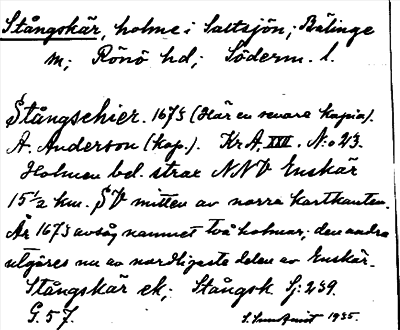 Stångskär, holme i Saltsjön; Bälinge
sn; Rönö hd; Söderm. l.
Stångschier. 1675 (Här en senare kopia).
A. Anderson (kop.). Kr A. XXI. N:o 23.
Holmen bel. strax NNV Enskär
15 1/2 km. SV mitten av norra kartkanten.
År 1673 avsåg namnet två holmar; den andra
utgöres nu av nordligaste delen av Enskär.
Stångskär ek; Stångsk. Sj: 239.
G. 57. 1935.